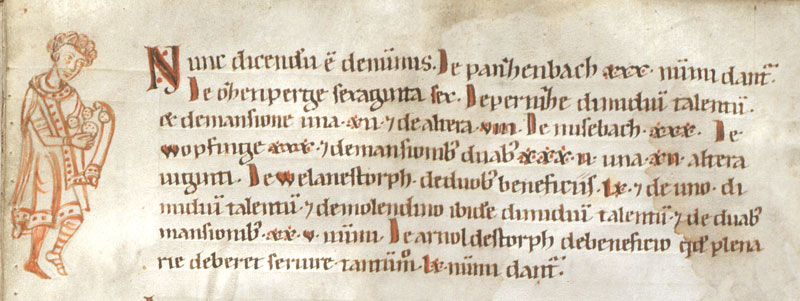 Nunc dicendū ē denūmis. De panꝛhenbach xxx. nūmi danť.
De oꝉhenperge sexaginta sex. De pernꝛhe dimidiū talentū.
& de mansione una. xii. ⁊ de altera. viii. De nusebach. xxx. De
wopfinge xxx. ⁊ de mansionib᷒ duab᷒ xxx. ii. una. xii. altera
viginti. De welanestorph. de duob᷒ beneficiis. lx. ⁊ de uno. di
midiū talentū. ⁊ de molendino ibidē dimidiū talentū. ⁊ de duab᷒
mansionib᷒. xx. v. nūmi. De arnoldestorph de beneficio qđ plena
rie deberet servire tantūm̊. lx. nūmi danť.